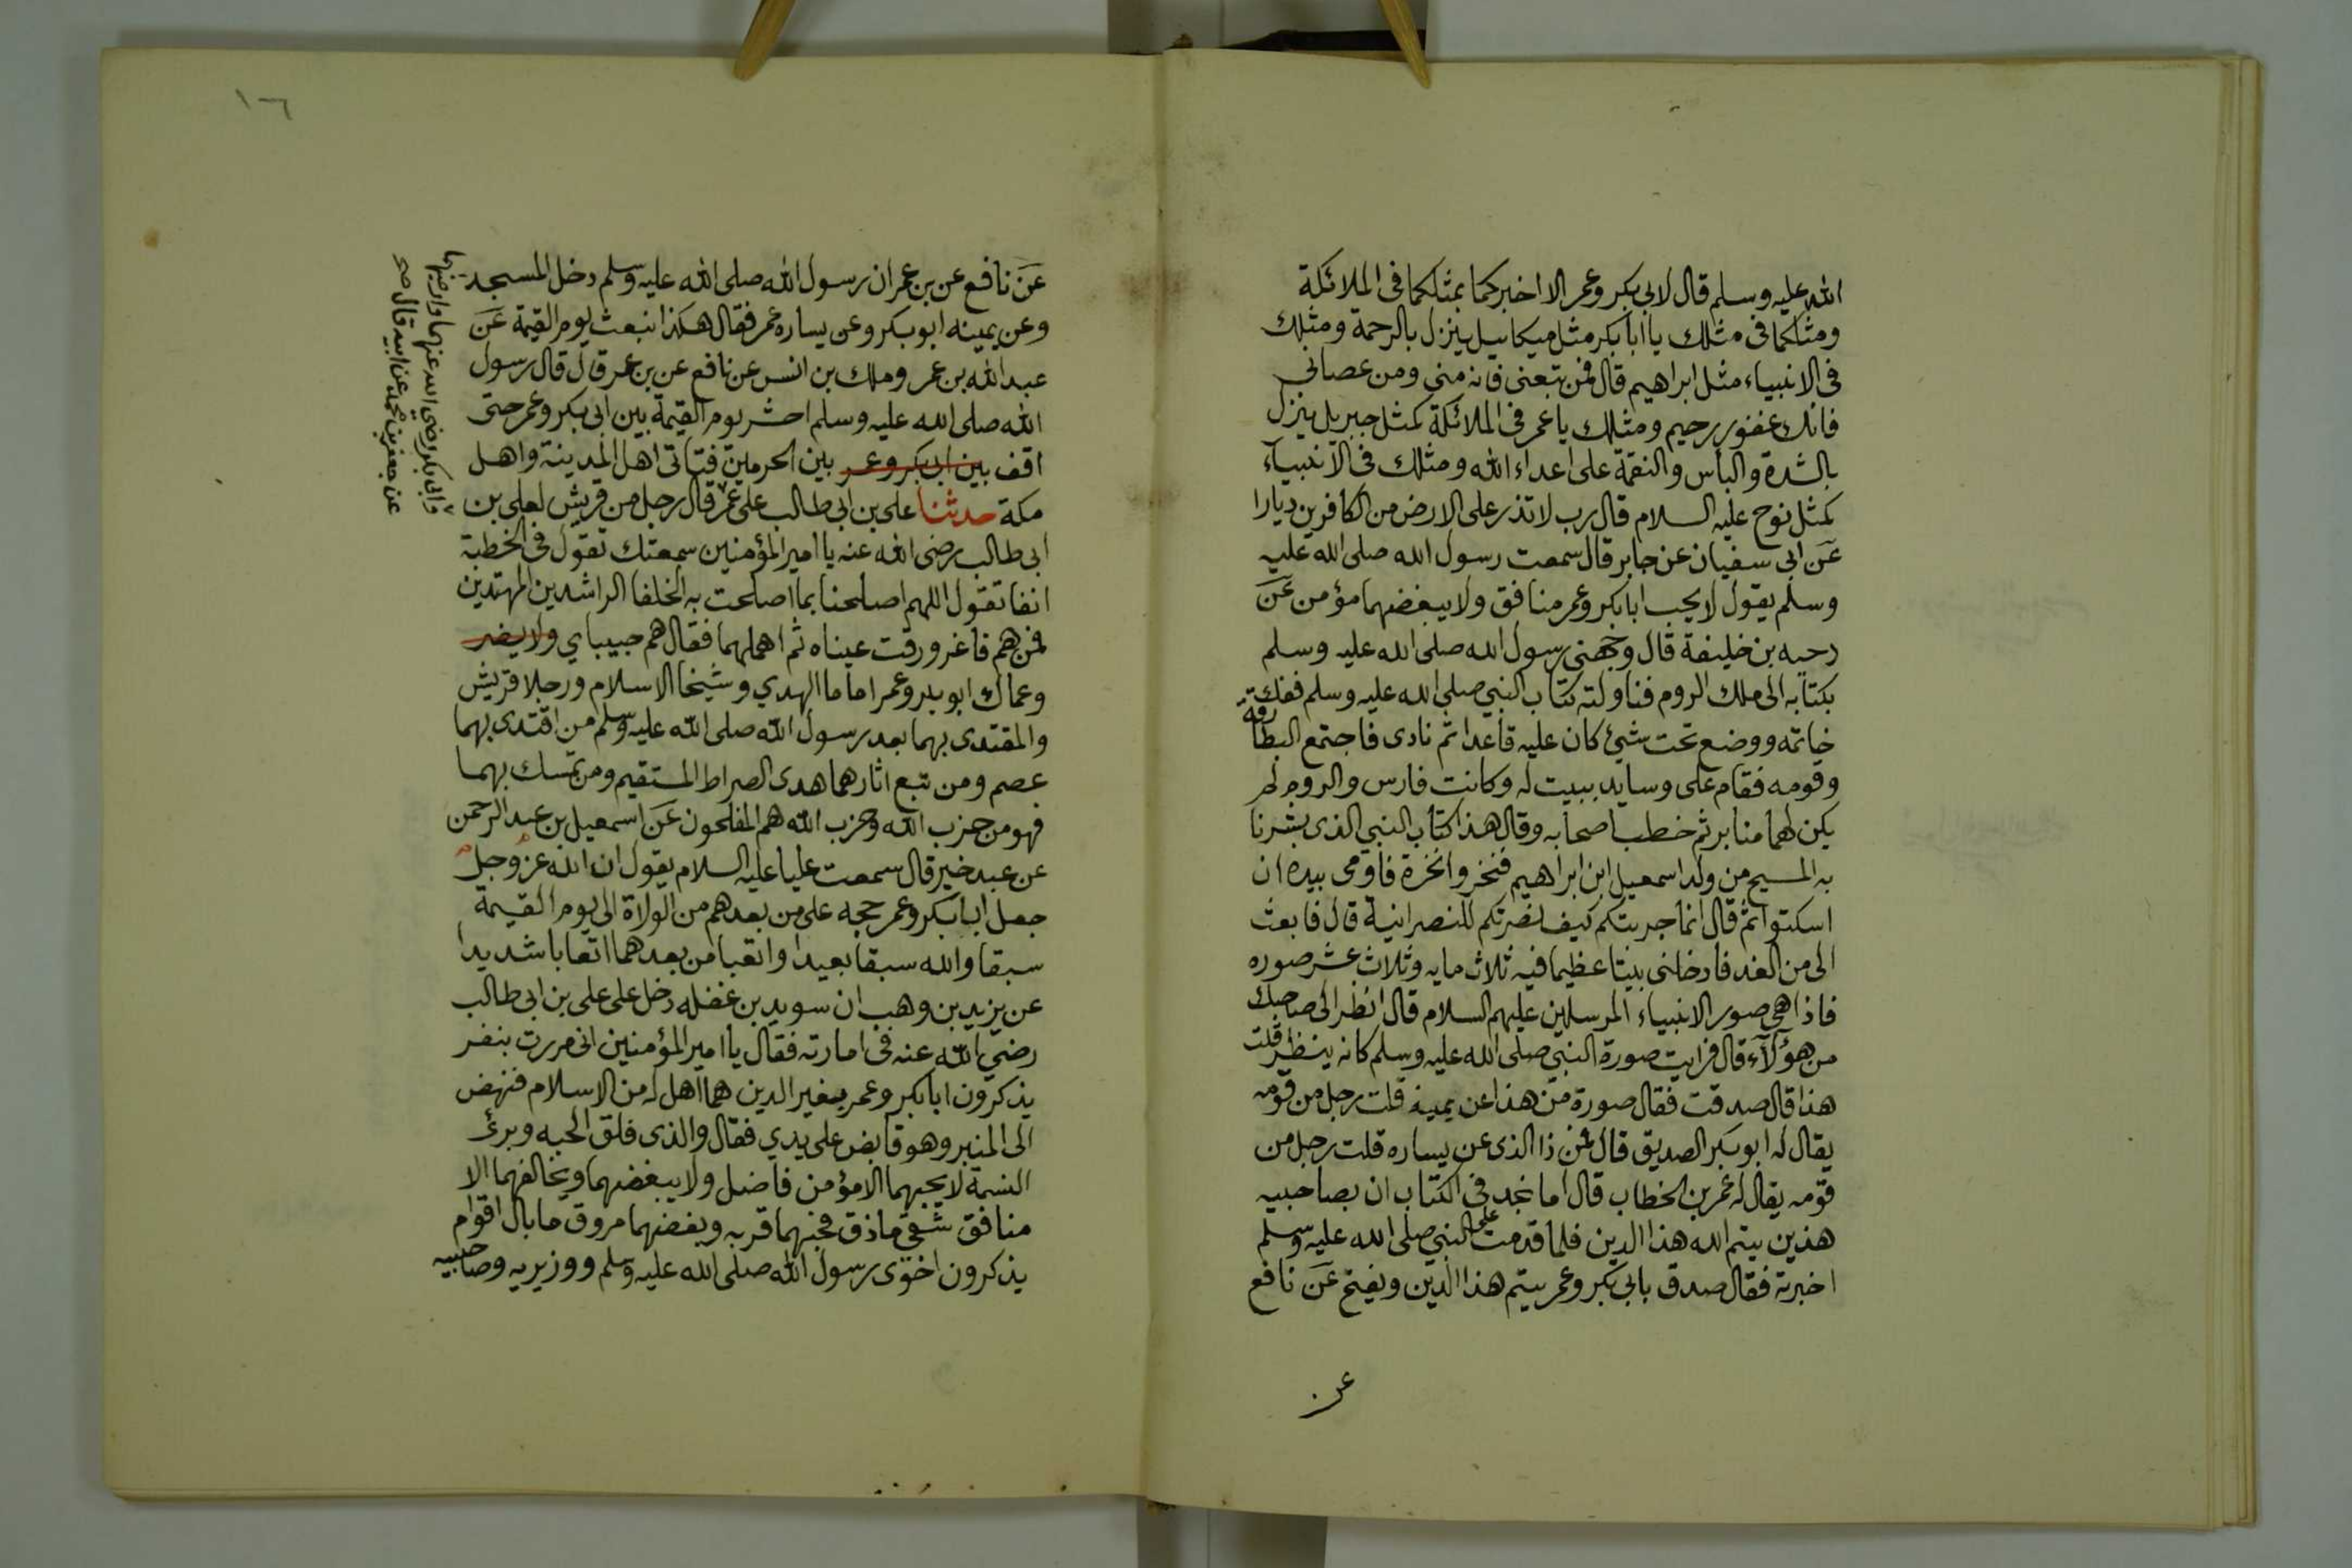 الله عليه وسلم قال لابي بكر وعمر الا اخبركما بمثلكما فى الملائكة
ومثلكما فى مثلك يا ابا بكر مثل ميكاييل ينزل بالرحمة ومثلك
فى الانبياء مثل ابراهيم قال فمن تبعنى فانه منى ومن عصانى
فانك غفور رحيم ومثلك يا عمر فى الملائكة كمثل جبريل ينزل
بالشدة والبأس والنقمة على اعداء الله ومثلك فى الانبياء
كمثل نوح عليه السلام قال رب لا تذر على الارض من الكافرين ديارا
عن ابى سفيان عن جابر قال سمعت رسول الله صلى الله عليه
وسلم يقول لا يحب ابا بكر وعمر منافق ولا يبغضهما مؤمن عن
دحيه بن خليفة قال وجهنى رسول الله صلى الله عليه وسلم
بكتابه الى ملك الروم فناولته كتاب النبي صلى الله عليه وسلم ففك
خاتمه ووضع تحت شئ كان عليه قاعدا ثم نادى فاجتمع البطارقة
وقومه فقام على وسايد ببيت له وكانت فارس والروم لم
يكن لهما منابر ثم خطب اصحابه وقال هذا كتاب النبي الذى بشرنا
به المسيح من ولد اسمعيل ابن ابراهيم فنخروا نخرة فاومى بيده ان
اسكتوا ثم قال انما جربتكم كيف نصرتكم للنصرانية قال فابعث
الى من الغد فادخلنى بيتا عظيما فيه ثلاث مايه وثلاث عشر صوره
فاذا هي صور الانبياء المرسلين عليهم السلام قال انظر الى صاحبك
من هؤلاء قال فرايت صورة النبي صلى الله عليه وسلم كانه ينظر قلت
هذا قال صدقت فقال صورة من هذا عن يمينه قلت رجل من قومه
يقال له ابو بكر الصديق قال فمن ذا الذى عن يساره قلت رجل من
قومه يقال له عمر بن الخطاب قال اما نجد فى الكتاب ان بصاحبيه
هذين يتم الله هذا الدين فلما قدمت على النبي صلى الله عليه وسلم
اخبرته فقال صدق بابي بكر وعمر يتم هذا الدين ويفتح عن نافع
عن
١٦
عن نافع عن بن عمر ان رسول الله صلى الله عليه وسلم دخل المسجد
وعن يمينه ابو بكر وعن يساره عمر فقال هكذا نبعث يوم القيمة عن
عبد الله بن عمر وملك بن انس عن نافع عن بن عمر قال قال رسول
الله صلى الله عليه وسلم احشر يوم القيمة بين ابى بكر وعمر حتى
اقف بين ابى بكر وعمر بين الحرمين فتأتى اهل المدينة واهل
مكة حدثنا على بن ابى طالب على عمر قال رجل من قريش لعلى بن
ابى طالب رضى الله عنه يا امير المؤمنين سمعتك تقول فى الخطبة
انفا تقول اللهم اصلحنا بما اصلحت به الخلفا الراشدين المهتدين
فمن هم فاغرورقت عيناه ثم اهملهما فقال هم حبيباي ولا يضر
وعماك ابو بكر وعمر اماما الهدي وشيخا الاسلام ورجلا قريش
والمقتدى بهما بعد رسول الله صلى الله عليه وسلم من اقتدى بهما
عصم ومن تبع اثارهما هدى الصراط المستقيم ومن تمسك بهما
فهو من حزب الله وحزب الله هم المفلحون عن اسمعيل بن عبد الرحمن
عن عبد خير قال سمعت عليا عليه السلام يقول ان الله عز وجل
جعل ابا بكر وعمر حجه على من بعدهم من الولاة الى يوم القيمة
سبقا والله سبقا بعيدا واتعبا من بعدهما اتعابا شديدا
عن يزيد بن وهب ان سويد بن غفله دخل على على بن ابى طالب
رضي الله عنه فى امارته فقال يا امير المؤمنين انى مررت بنفر
يذكرون ابا بكر وعمر بغير الدين هما اهل له من الاسلام فنهض
الى المنبر وهو قابض على يدي فقال والذى فلق الحبه وبرئ
النسمة لا يحبهما الا مؤمن فاضل ولا يبغضهما ويخالفهما الا
منافق شقي ماذق فحبهما قربه وبغضهما مروق ما بال اقوام
يذكرون اخوى رسول الله صلى الله عليه وسلم ووزيريه وصاحبيه
وابى بكر رضي الله عنهما وارضهما
عن جعفر بن محمد عن ابيه قال صح